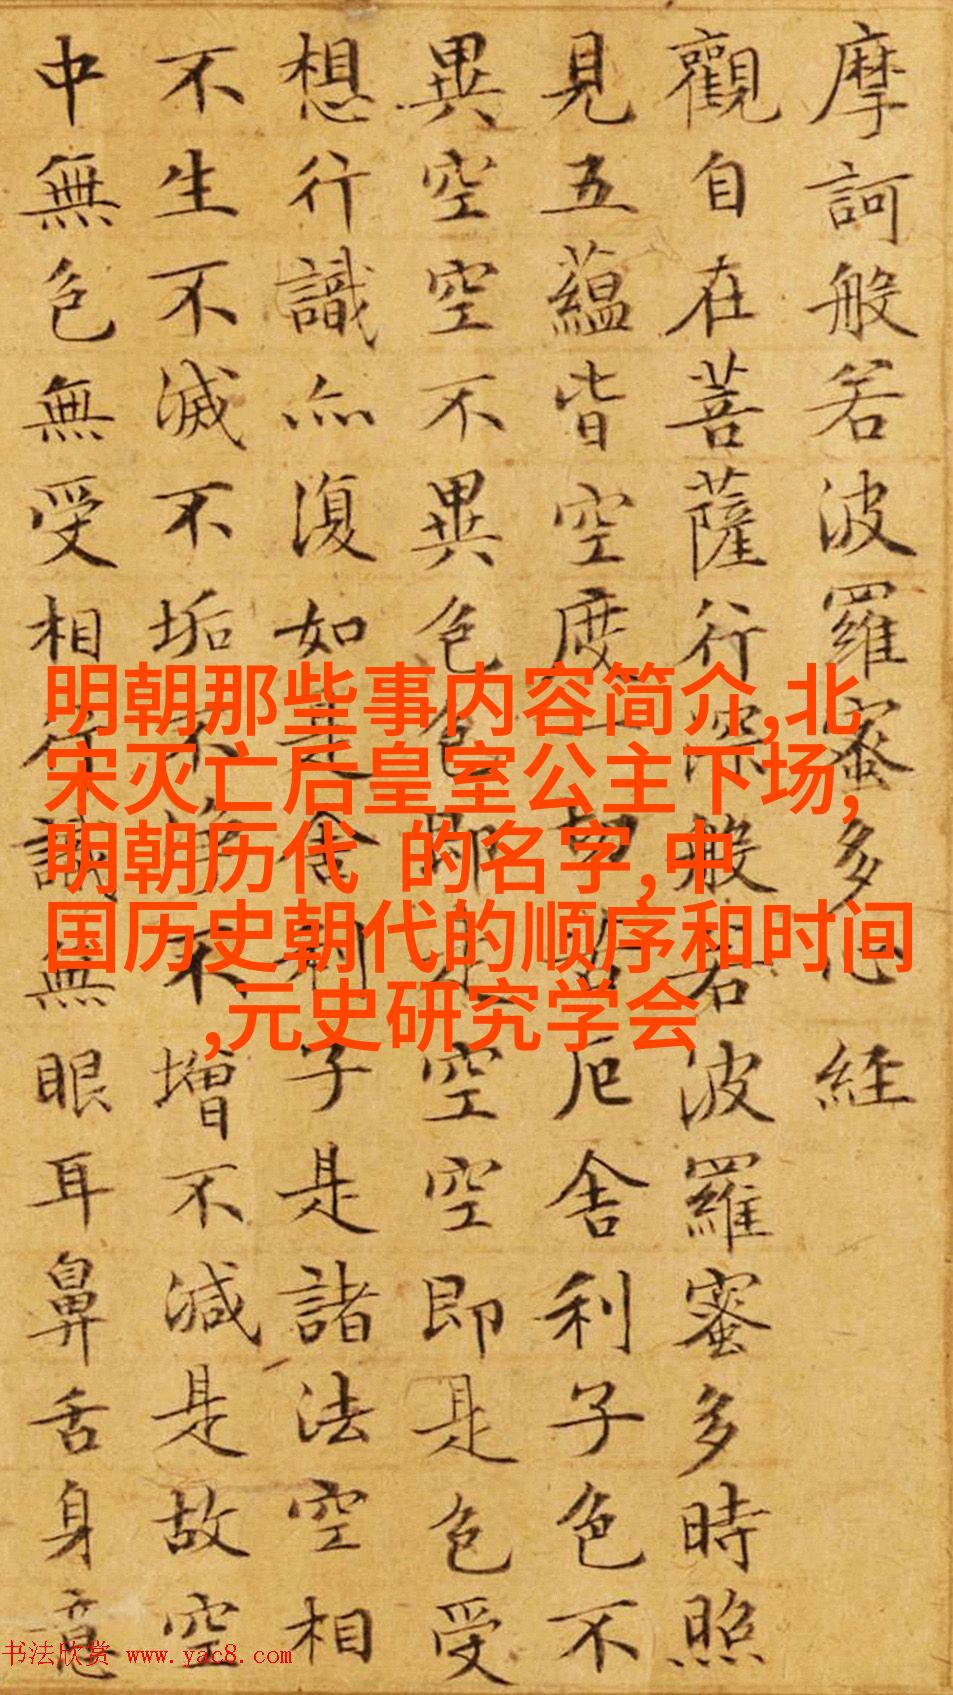 摩訶般若波羅蜜多心經
觀自在菩薩行深般若波羅蜜多時照
見五蘊皆空度一切苦厄舍利子色不
異空空不異色色即是空空即是色受
想行識亦復如是舍利子是諸法空相
不生不滅不垢不淨不增不減是故空
中無色無受相行識無眼耳鼻舌身意
明朝那些事内容简介,北
宋灭亡后皇室公主下场,
明朝历代  的名字,中
国历史朝代的顺序和时间
,元史研究学会
书法欣赏 www.yac8.com